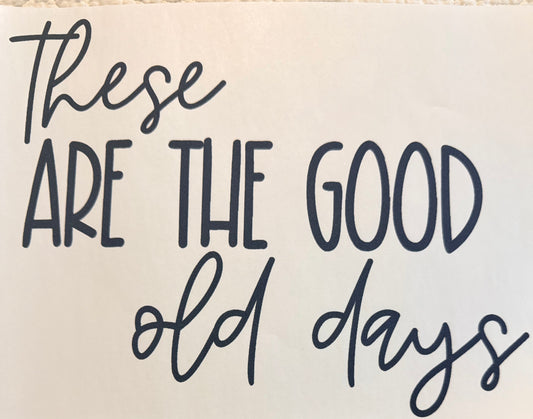 These
ARE THE GOOD
old days